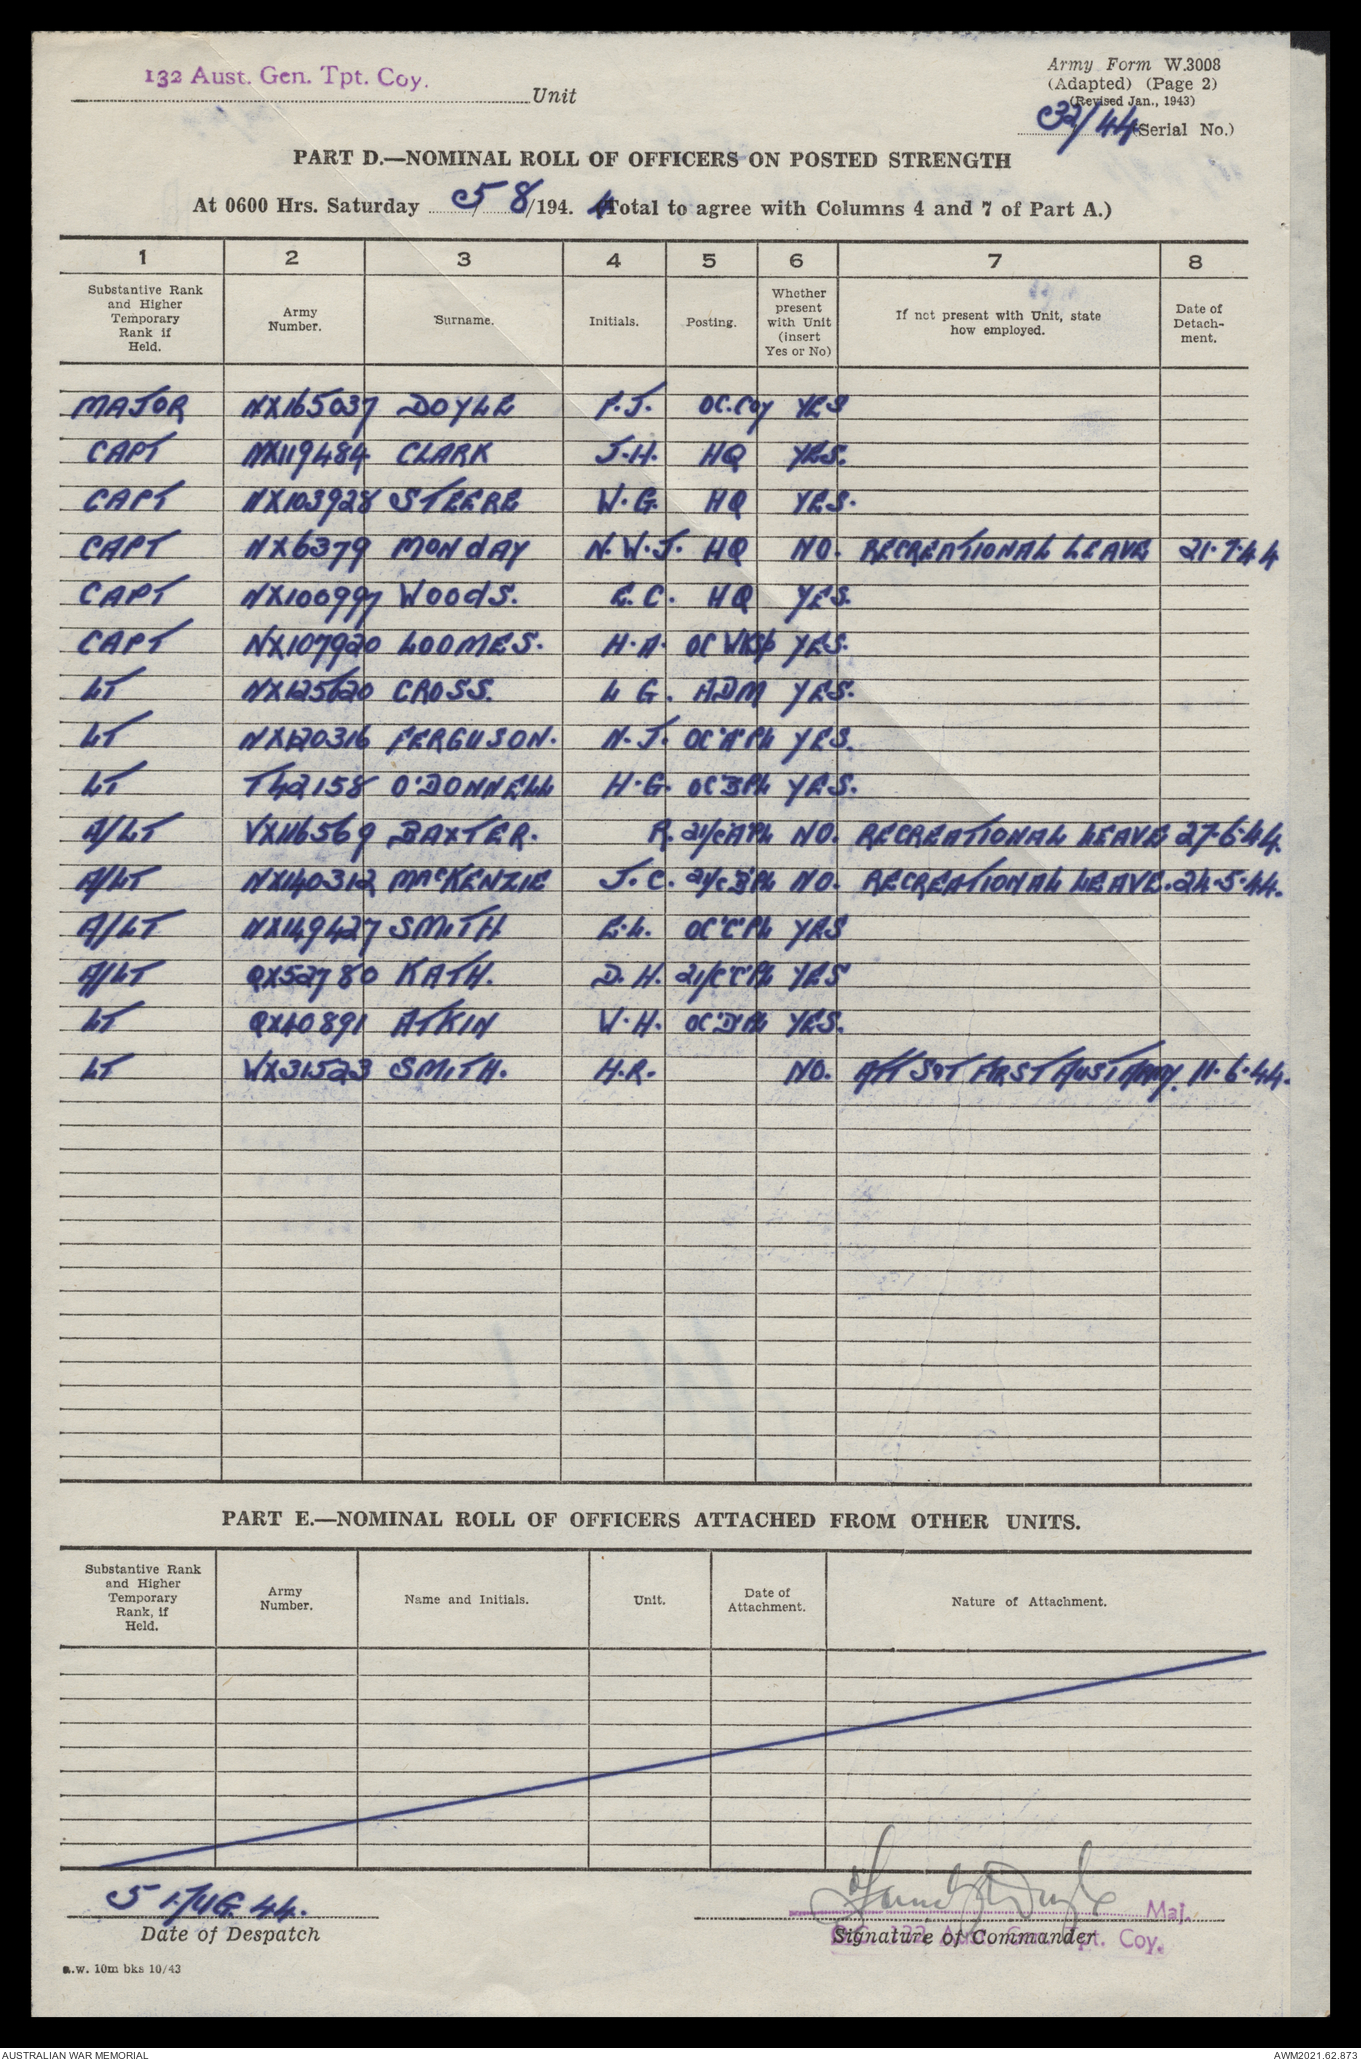 132 Aust. Gen. Tpt. Coy. Unit
Army Form W.3008
(Adapted) (Page 2)
(Revised Jan., 1943)
32/44 (Serial No.)
PART D.—NOMINAL ROLL OF OFFICERS ON POSTED STRENGTH
At 0600 Hrs. Saturday 5/8/194.4 (Total to agree with Columns 4 and 7 of Part A.)
1 2 3 4 5 6 7 8
Substantive Rank and Higher Temporary Rank if Held. Army Number. Surname. Initials. Posting. Whether present with Unit (insert Yes or No) If not present with Unit, state how employed. Date of Detach-ment.
MAJOR NX165037 DOYLE F.J. OC.Coy YES
CAPT NX119484 CLARK J.H. HQ YES.
CAPT NX103928 STEERE W.G. HQ YES.
CAPT NX6379 MONDAY N.W.J. HQ NO. RECREATIONAL LEAVE 21.7.44
CAPT NX100997 WOODS. E.C. HQ YES.
CAPT NX107920 LOOMES. H.A. OC WKSP YES.
LT NX125620 CROSS. L G. ADM YES.
LT NX120316 FERGUSON. N.J. OC'A'PL YES.
LT T42158 O'DONNELL H.G. OC'B'PL YES.
A/LT VX116569 BAXTER. R. 2i/c'A'PL NO. RECREATIONAL LEAVE 27.6.44.
A/LT NX140312 MacKENZIE J.C. 2i/c'B'PL NO. RECREATIONAL LEAVE. 24.5.44.
A/LT NX149427 SMITH E.L. OC'C'PL YES
A/LT QX52780 KATH. D.H. 2i/c'C'PL YES
LT QX40891 ATKIN W.H. OC'D'PL YES.
LT WX31523 SMITH. H.R. NO. ATT S&T FIRST AUST ARMY. 11.6.44.
PART E.—NOMINAL ROLL OF OFFICERS ATTACHED FROM OTHER UNITS.
Substantive Rank and Higher Temporary Rank, if Held. Army Number. Name and Initials. Unit. Date of Attachment. Nature of Attachment.
5 AUG. 44.
Maj.
Date of Despatch
Signature of Commander
O.C. 132 Aust. Gen. Tpt. Coy.
a.w. 10m bks 10/43
AUSTRALIAN WAR MEMORIAL
AWM2021.62.873